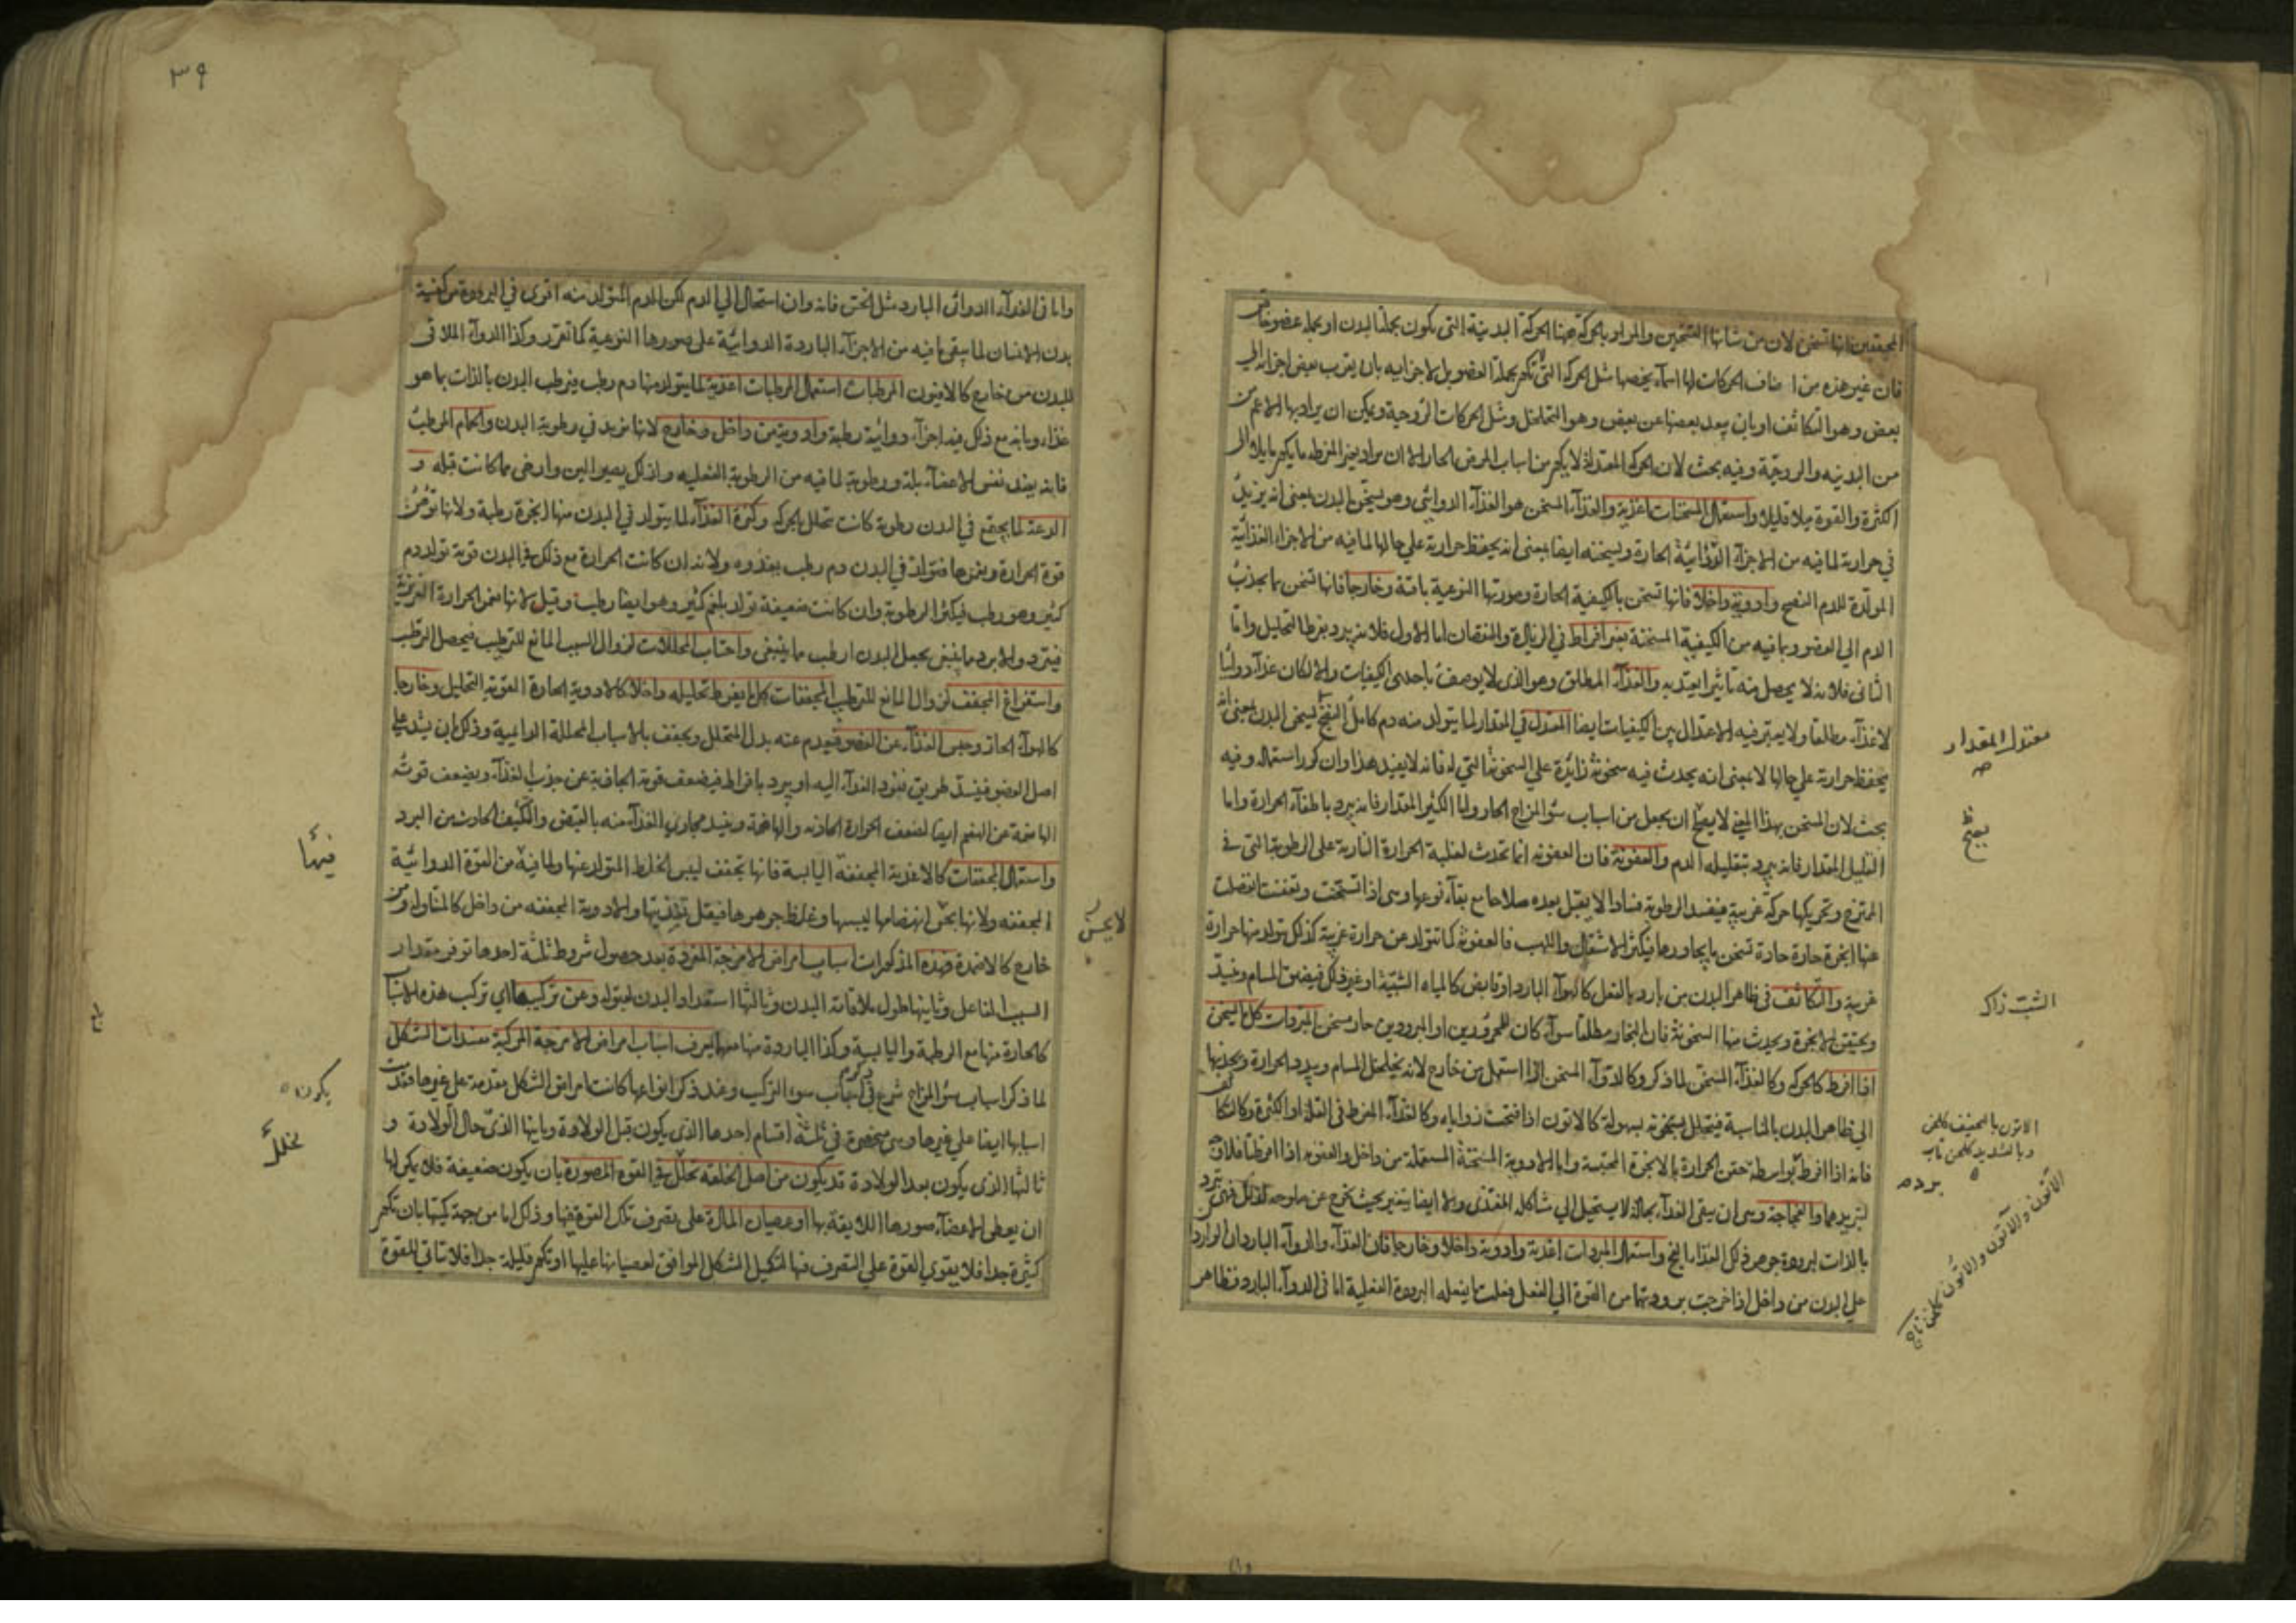 المحققين انها تسخن لان من شانها التسخين والمراد بالحركة ههنا الحركة البدنية التى يكون بجملة البدن او بجملة عضو خاص
فان غير هذه من اصناف الحركات لها اسماء يخصها مثل الحركة التى تكون بجملة العضو بل لاجزايه بان يقرب بعض اجزائه الى
بعض وهو التكاثف او بان يبعد بعضها عن بعض وهو التخلخل ومثل الحركات الروحية ويمكن ان يراد بها الاعم من
من البدنيه والروحيّة وفيه بحث لان الحركة المعتدلة لا يكون من اسباب المرض الحار الا ان يراد بغير المفرطه ما يكون مايلا الى
الكثرة والقوة ميلا قليلا واستعمال المسخنات اغذية والغذاء المسخن هو الغذاء الدوائى وهو يسخن البدن بمعنى انه يزيد
فى حرارته لما فيه من الاجزاء الدوائية الحارة ويسخنه ايضا بمعنى انه يحفظ حرارته على حالها لما فيه من الاجزاء الغذائية
المولّدة للدم النضيج وادوية داخلا فانها تسخن بالكيفية الحارة وصورتها النوعية باقية وخارجا فانها تسخن بما يجذب
الدم الى العضو وبما فيه من الكيفية المسخنة بغير افراط فى الزيادة والنقصان اما الاول فلانه يبرد بفرط التحليل واما
الثانى فلانه لا يحصل منه تاثير يعتد به والغذاء المطلق وهو الذى لا يوصف باحدى الكيفيات والا لكان غذاء دوائيا
لا غذاء مطلقا ولا يعتبر فيه الاعتدال بين الكيفيات ايضا المعتدل فى المقدار لما يتولد منه دم كامل النضج يسخن البدن بمعنى انه
يحفظ حرارته على حالها لا بمعنى انه يحدث فيه سخونة زائدة على السخونة التى له فانه لا يفيد هذا وان كرر استعماله وفيه
بحث لان المسخن بهذا المعنى لا يصح ان يجعل من اسباب سوء المزاج الحار واما الكثير المقدار فانه يبرد باطفاء الحرارة واما
القليل المقدار فانه يبرد بتقليله الدم والعفونة فان العفونة انما تحدث لغلبة الحرارة النارية على الرطوبة التى فى
الممتزج وتحريكها حركة غريبة فيفسد الرطوبة فسادا لا يقبل بعده صلاحا مع بقاء نوعها وهى اذا تسخنت وتعفنت انفصلت
عنها ابخرة حارة حادة تسخن ما يجاورها فيكثر الاشتعال واللهب فالعفونة كما تتولد عن حرارة غريبة كذلك يتولد منها حرارة
غريبة والتكاثف فى ظاهر البدن من بارد بالفعل كالهواء البارد او قابض كالمياه الشبية او غير ذلك فيضيق المسام وينسد
ويحتقن الابخرة ويحدث منها السخونة فان البخار مطلقا سواء كان للمحرورين او المبرودين حار مسخن المبردات كل ما يسخن
اذا افرط كالحركة وكالغذاء المسخن لما ذكر وكالدواء المسخن اذا استعمل من خارج لانه يخلخل المسام ويبدد الحرارة ويجذبها
الى ظاهر البدن بالمناسبة فيتحلل سخونته بسهولة كالاتون اذا فتحت زواياه وكالغذاء المفرط فى القلة او الكثرة وكالتكاثف
فانه اذا افرط بواسطة حقن الحرارة بالابخرة المحتبسة واما الادوية المسخنة المستعملة من داخل والعفونة اذا افرطتا فلا
لتبريدهما والفجاجة وهى ان يبقى الغذاء بحاله لا يستحيل الى مشاكلة المغتذى ولا ايضا يتغير بحيث يخرج عن صلوحه لذلك فهى تبرد
بالذات لبرودة جوهر ذلك الغذاء الفج واستعمال المبردات اغذية وادوية داخلا وخارجا فان الغذاء والدواء الباردان الواردان
على البدن من داخل اذا خرجت برودتهما من القوة الى الفعل فعلت ما يفعله البرودة الفعلية اما فى الدواء البارد فظاهر
معتدل المقدار
صح
يصح
الشبت زاك
الاتون بالتخفيف كلخن
وبالتشديد كلخن تاب
برده
الاتون والآتون والاتّون كلخن تاب
٣٩
واما فى الغذاء الدوائى البارد مثل الخس فانه وان استحال الى الدم لكن الدم المتولد منه اقوى فى البرودة من كيفية
بدن الانسان لما يبقى ما فيه من الاجزاء الباردة الدوائيّة على صورها النوعية كما تقرر وكذا الدواء الملاقى
للبدن من خارج كالافيون المرطبات استعمال المرطبات اغذية لما يتولد منها دم رطب فيرطب البدن بالذات بما هو
غذاء وبانه مع ذلك فيه اجزاء دوائية رطبة وادوية من داخل وخارج لانها تزيد فى رطوبة البدن والحمام المرطب
فانه يفيد نفس الاعضاء بلة ورطوبة لما فيه من الرطوبة الفعليه ولذلك يصير الين وارخى مما كانت قبله و
الدعة لما يجتمع فى البدن رطوبة كانت تتحلل بالحركة وكثرة الغذاء لما يتولد فى البدن منها ابخرة رطبة ولانها توهن
قوة الحرارة ويغمرها فتولد فى البدن دم رطب يغذوه ولانه ان كانت الحرارة مع ذلك فى البدن قوية تولد دم
كثير وهو رطب فيكثر الرطوبة وان كانت ضعيفة تولد بلغم كثير وهو ايضا رطب وقيل لانها تغمر الحرارة الغريزية
فيبرد والابرد مما ينبغى يجعل البدن ارطب مما ينبغى واجتناب المحللات لزوال السبب المانع للترطيب فيحصل الترطيب
واستفراغ المجفف لزوال المانع للترطيب المجففات كل ما يفرط تحليله داخلا كالادوية الحارة القوية التحليل وخارجا
كالهواء الحار وحبس الغذاء عن العضو فيعدم عنه بدل المتحلل ويجفف بالاسباب المحللة الدايمية وذلك بان يشد على
اصل العضو فينسد طريق نفوذ الغذاء اليه او يبرد بافراط فيضعف قوته الجاذبة عن جذب الغذاء ويضعف قوته
الهاضمة عن الهضم ايضا لضعف الحرارة الجاذبة والهاضمة وينسد مجارى الغذاء منه بالقبض والتكثيف الحادث من البرد
واستعمال المجففات كالاغذية المجففة اليابسة فانها تجفف ليبس الخلط المتولد عنها ولما فيها من القوة الدوائيّة
المجففه ولانها يحسر انهضامها ليبسها وغلظ جوهرها فيقل تغذيتها والادوية المجففه من داخل كالمتناولة ومن
خارج كالاضمدة فهذه المذكورات اسباب امراض الامزجة المفردة بعد حصول شروط ثلثة احدها توفر مقدار
السبب الفاعل وثانيها طول ملاقاته البدن وثالثها استعداد البدن لقبوله وعن تركيبها اى تركيب هذه الاسباب
كالحارة منها مع الرطبة واليابسة وكذا الباردة منها معهما يعرف اسباب امراض الامزجة المركبة مفسدات الشكل
لما ذكر اسباب سوء المزاج شرع فى اسباب سوء التركيب وعند ذكر انواعها كانت امراض الشكل مقدمة على غيرها فقدمت
اسبابها ايضا على غيرها وهى منحصرة فى ثلثة اقسام احدها الذى يكون قبل الولادة وثانيها الذى حال الولادة و
ثالثها الذى يكون بعد الولادة قد يكون من اصل الخلقة لخلل فى القوة المصورة بان يكون ضعيفة فلا يمكن لها
ان يعطى الاعضاء صورها اللايقة بها او عصيان المادة على تصرف تلك القوة فيها وذلك اما من جهة كميتها بان تكون
كثيرة جدا فلا يقوى القوة على التصرف فيها لتشكيل الشكل الموافق لعصيانها عليها او تكون قليلة جدا فلا يتاتى للقوة
فيها
يكون
لخلل